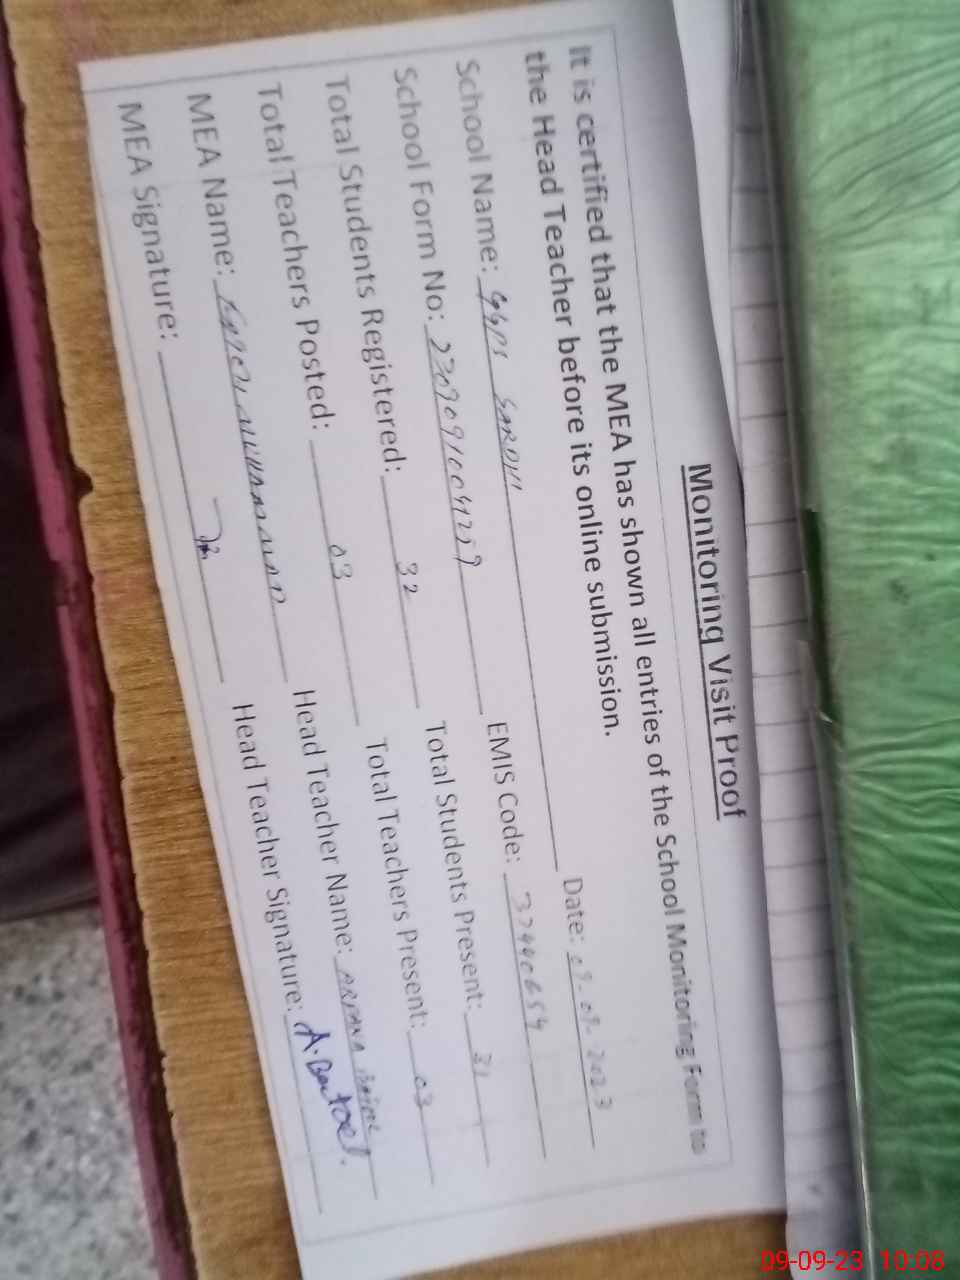 Monitoring Visit Proof
It is certified that the MEA has shown all entries of the School Monitoring Form to
the Head Teacher before its online submission.
School Name: GGPS Date: 09.09.2023
School Form No: EMIS Code: 37440654
Total Students Registered: 32 Total Students Present: 31
Total Teachers Posted: 03 Total Teachers Present: 03
MEA Name: Head Teacher Name:
MEA Signature: Head Teacher Signature: A.
09-09-23 10:08